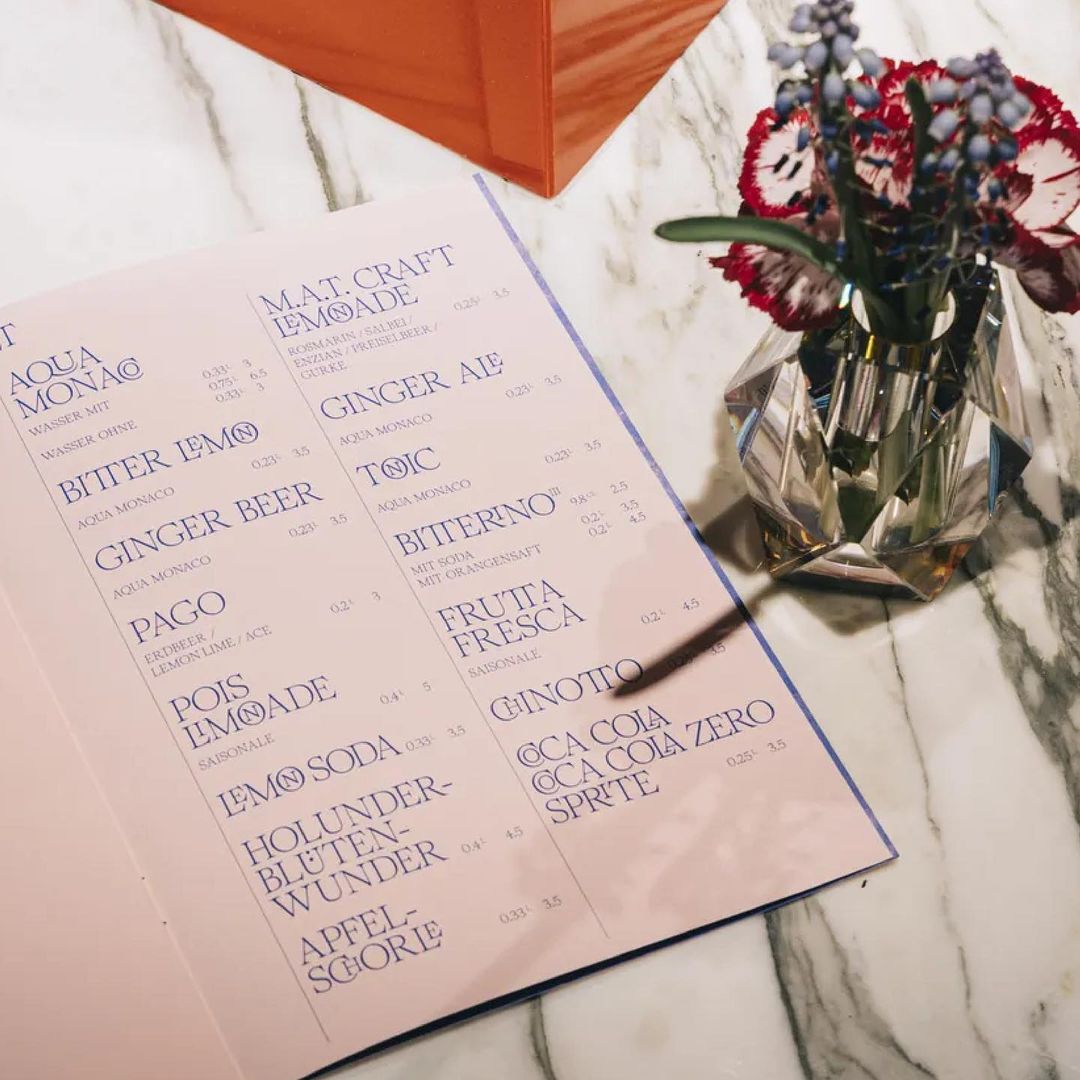 T
AQUA
MONACO
0.33L 3
0.75L 6.5
0.33L 3
WASSER MIT
WASSER OHNE
BITTER LEMON
0.23L 3.5
AQUA MONACO
GINGER BEER
0.23L 3.5
AQUA MONACO
PAGO
0.2L 3
ERDBEER /
LEMON LIME / ACE
POIS
LEMONADE
0.4L 5
SAISONALE
LEMON SODA 0.33L 3.5
HOLUNDER-
BLÜTEN-
WUNDER 0.4L 4.5
APFEL-
SCHORLE
0.33L 3.5
M.A.T. CRAFT
LEMONADE 0.25L 3.5
ROSMARIN / SALBEI /
ENZIAN / PREISELBEER /
GURKE
GINGER ALE
0.23L 3.5
AQUA MONACO
TONIC
0.23L 3.5
AQUA MONACO
BITTERINO III 9.8CL 2.5
0.2L 3.5
0.2L 4.5
MIT SODA
MIT ORANGENSAFT
FRUTTA
FRESCA
0.2L 4.5
SAISONALE
CHINOTTO 3.5
COCA COLA
COCA COLA ZERO
SPRITE
0.25L 3.5